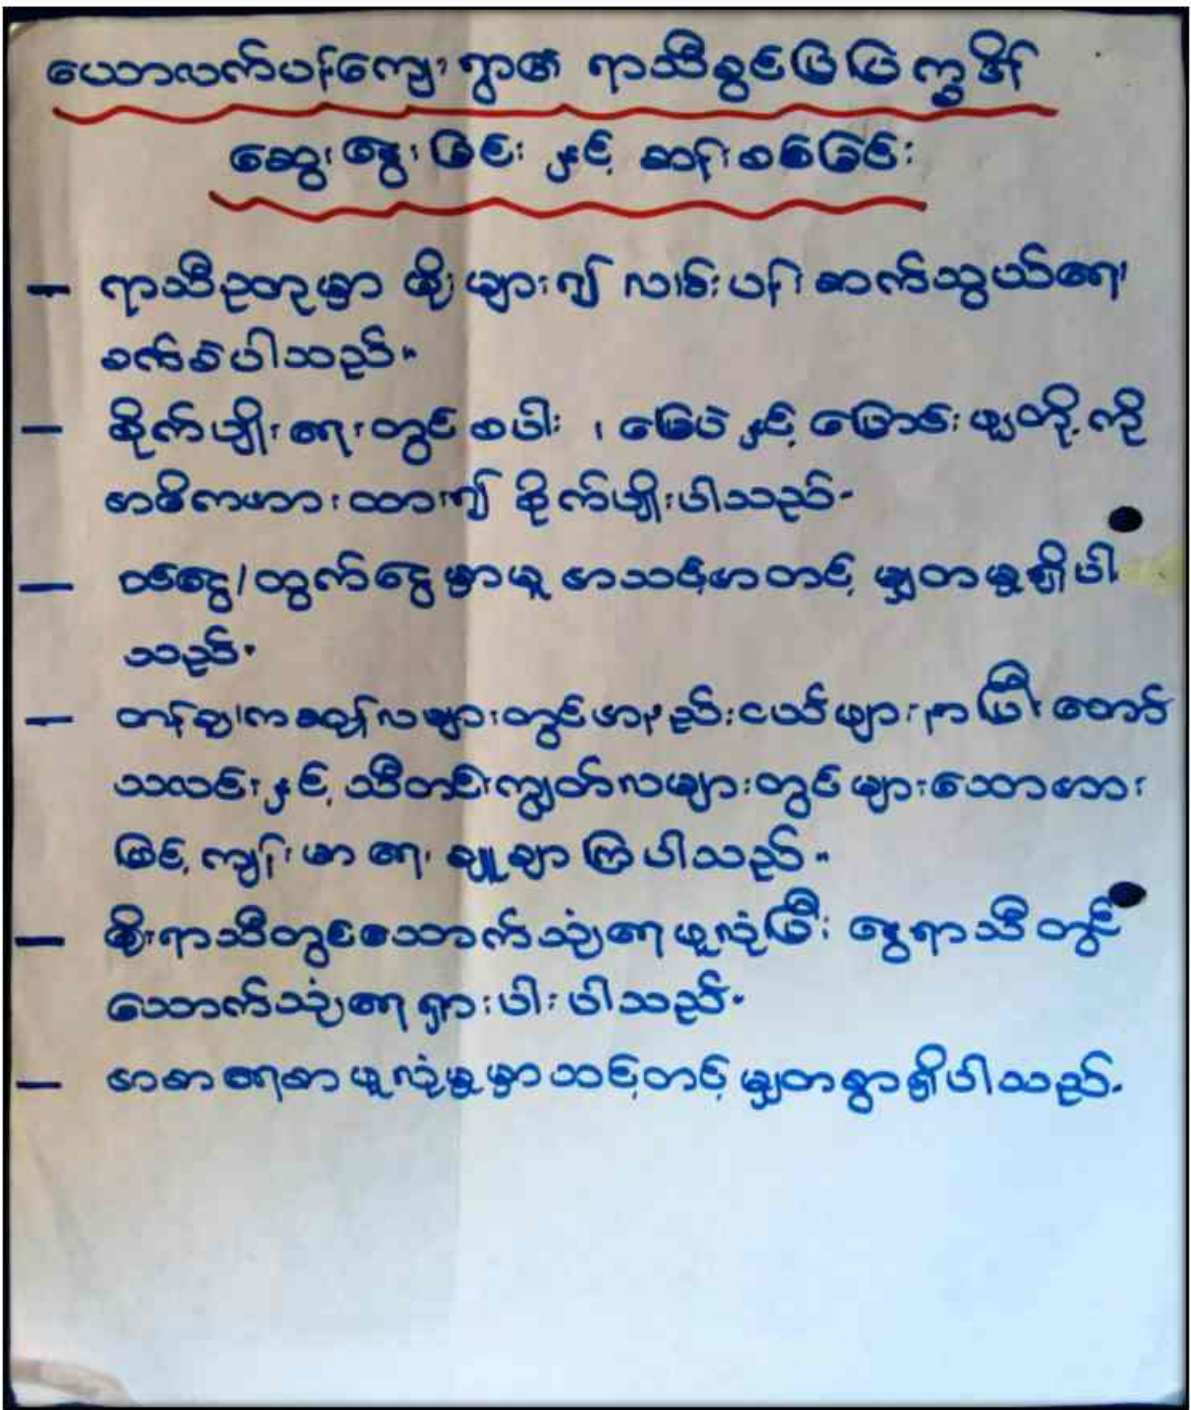 ယောလက်ပန်ကျေးရွာ၏ ရာသီခွင်ပြပြက္ခဒိန်
ဆွေးနွေးခြင်း နှင့် ဆန်းစစ်ခြင်း
– ရာသီဥတုမှာ မိုးများ၍ လမ်းပန်းဆက်သွယ်ရေး
ခက်ခဲပါသည်။
– စိုက်ပျိုးရေးတွင် စပါး ၊ မြေပဲနှင့် ပြောင်းဖူးတို့ကို
အဓိကထား၍ စိုက်ပျိုးပါသည်။
– ဝင်ငွေ/ထွက်ငွေမှာမူ အသင့်အတင့် မျှတမှုရှိပါ
သည်။
– တန်ခူး၊ကဆုန်လများတွင်အနည်းငယ်ဖျားနာပြီးတော်
သလင်းနှင့် သီတင်းကျွတ်လများတွင်များသောအား
ဖြင့် ကျန်းမာရေးချူချာကြပါသည်။
– မိုးရာသီတွင်သောက်သုံးရေဖူလုံပြီး နွေရာသီတွင်
သောက်သုံးရေရှားပါးပါသည်။
– အစာရေစာဖူလုံမှုမှာသင့်တင့်မျှတစွာရှိပါသည်။